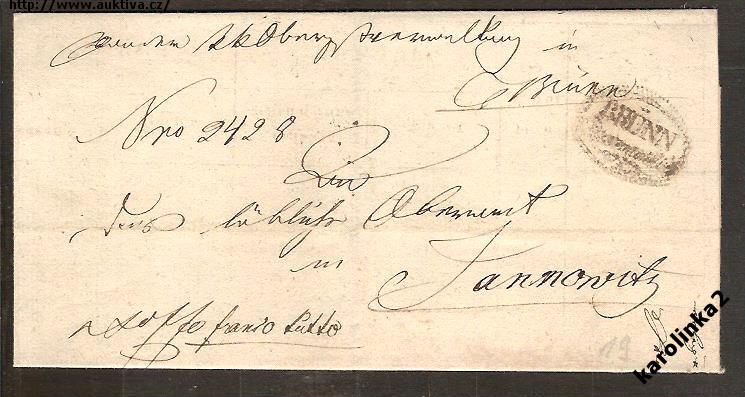 http://www.auktiva.cz/
von der kk Oberpostverwaltung in
Brünn
BRÜNN
Nro 2428
An
Das löbliche Oberamt
in
Jannowitz
franco
karolinka2
19